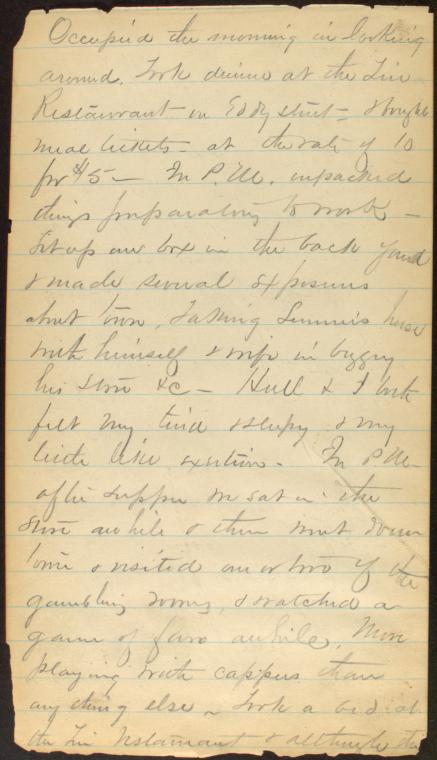 Occupied the morning in looking
around. Took dinner at the
Restaurant on Eddy street - & bought
meal tickets - at the rate of 10
for $5 - In P.M. unpacked
things preparatory to work -
Set up our box in the back yard
& made several exposures
about town, taking house
with himself & wife in buggy
his store &c - Hull & I both
felt very tired & sleepy & very
little like exertion - In P.M.
after supper we sat in the
store awhile & then went down
town & visited one or two of the
gambling rooms, & watched a
game of faro awhile, More
playing with cappers than
any thing else - Took a bed at
the restaurant & although the